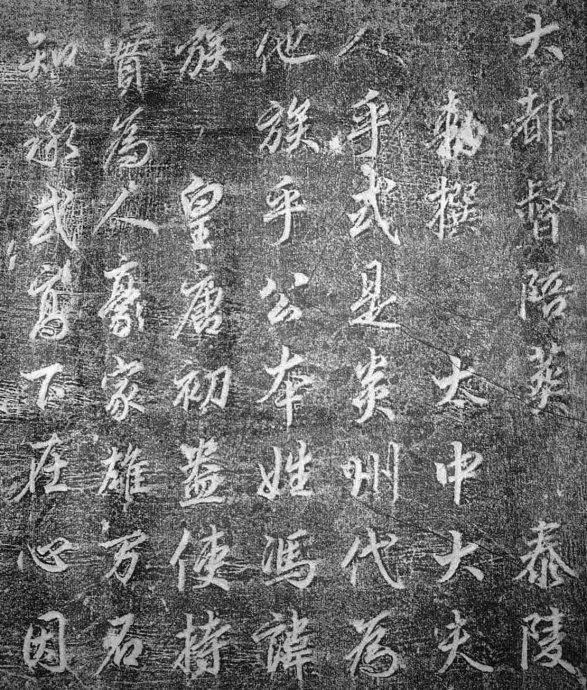 大都督陪葬 泰陵
敕撰 太中大夫
人乎式是炎州代為
他族乎公本姓馮諱
族 皇唐初盎使持
實為人豪家雄万石
知 下在心因